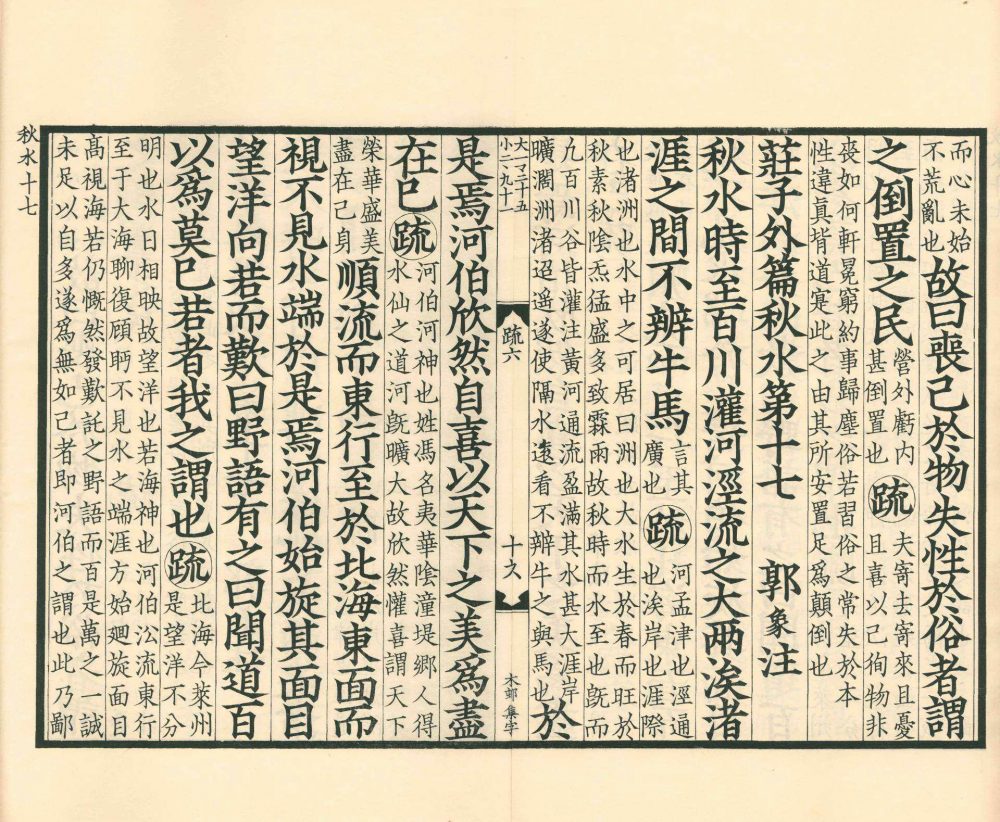 而心未始不荒亂也故曰喪己於物失性於俗者謂
之倒置之民營外虧内甚倒置也疏夫寄去寄來且憂且喜以己徇物非
喪如何軒冕窮約事歸塵俗若習俗之常失於本
性違真背道寔此之由其所安置足爲顛倒也
莊子外篇秋水第十七 郭象注
秋水時至百川灌河涇流之大兩涘渚
涯之間不辨牛馬言其廣也疏河孟津也涇通也涘岸也涯際
也渚洲也水中之可居曰洲也大水生於春而旺於
秋素秋陰炁猛盛多致霖雨故秋時而水至也旣而
九百川谷皆灌注黃河通流盈滿其水甚大涯岸
曠濶洲渚迢遥遂使隔水遠看不辨牛之與馬也於
疏六
木邨集字
是焉河伯欣然自喜以天下之美爲盡
在已疏河伯河神也姓馮名夷華陰潼堤鄉人得水仙之道河旣曠大故欣然懽喜謂天下
榮華盛美盡在己身順流而東行至於北海東面而
視不見水端於是焉河伯始旋其面目
望洋向若而歎曰野語有之曰聞道百
以爲莫已若者我之謂也疏北海今萊州是望洋不分
明也水日相映故望洋也若海神也河伯㳂流東行
至于大海聊復顧眄不見水之端涯方始迴旋面目
髙視海若仍慨然發歎託之野語而百是萬之一誠
未足以自多遂爲無如己者即河伯之謂也此乃鄙
秋水十七